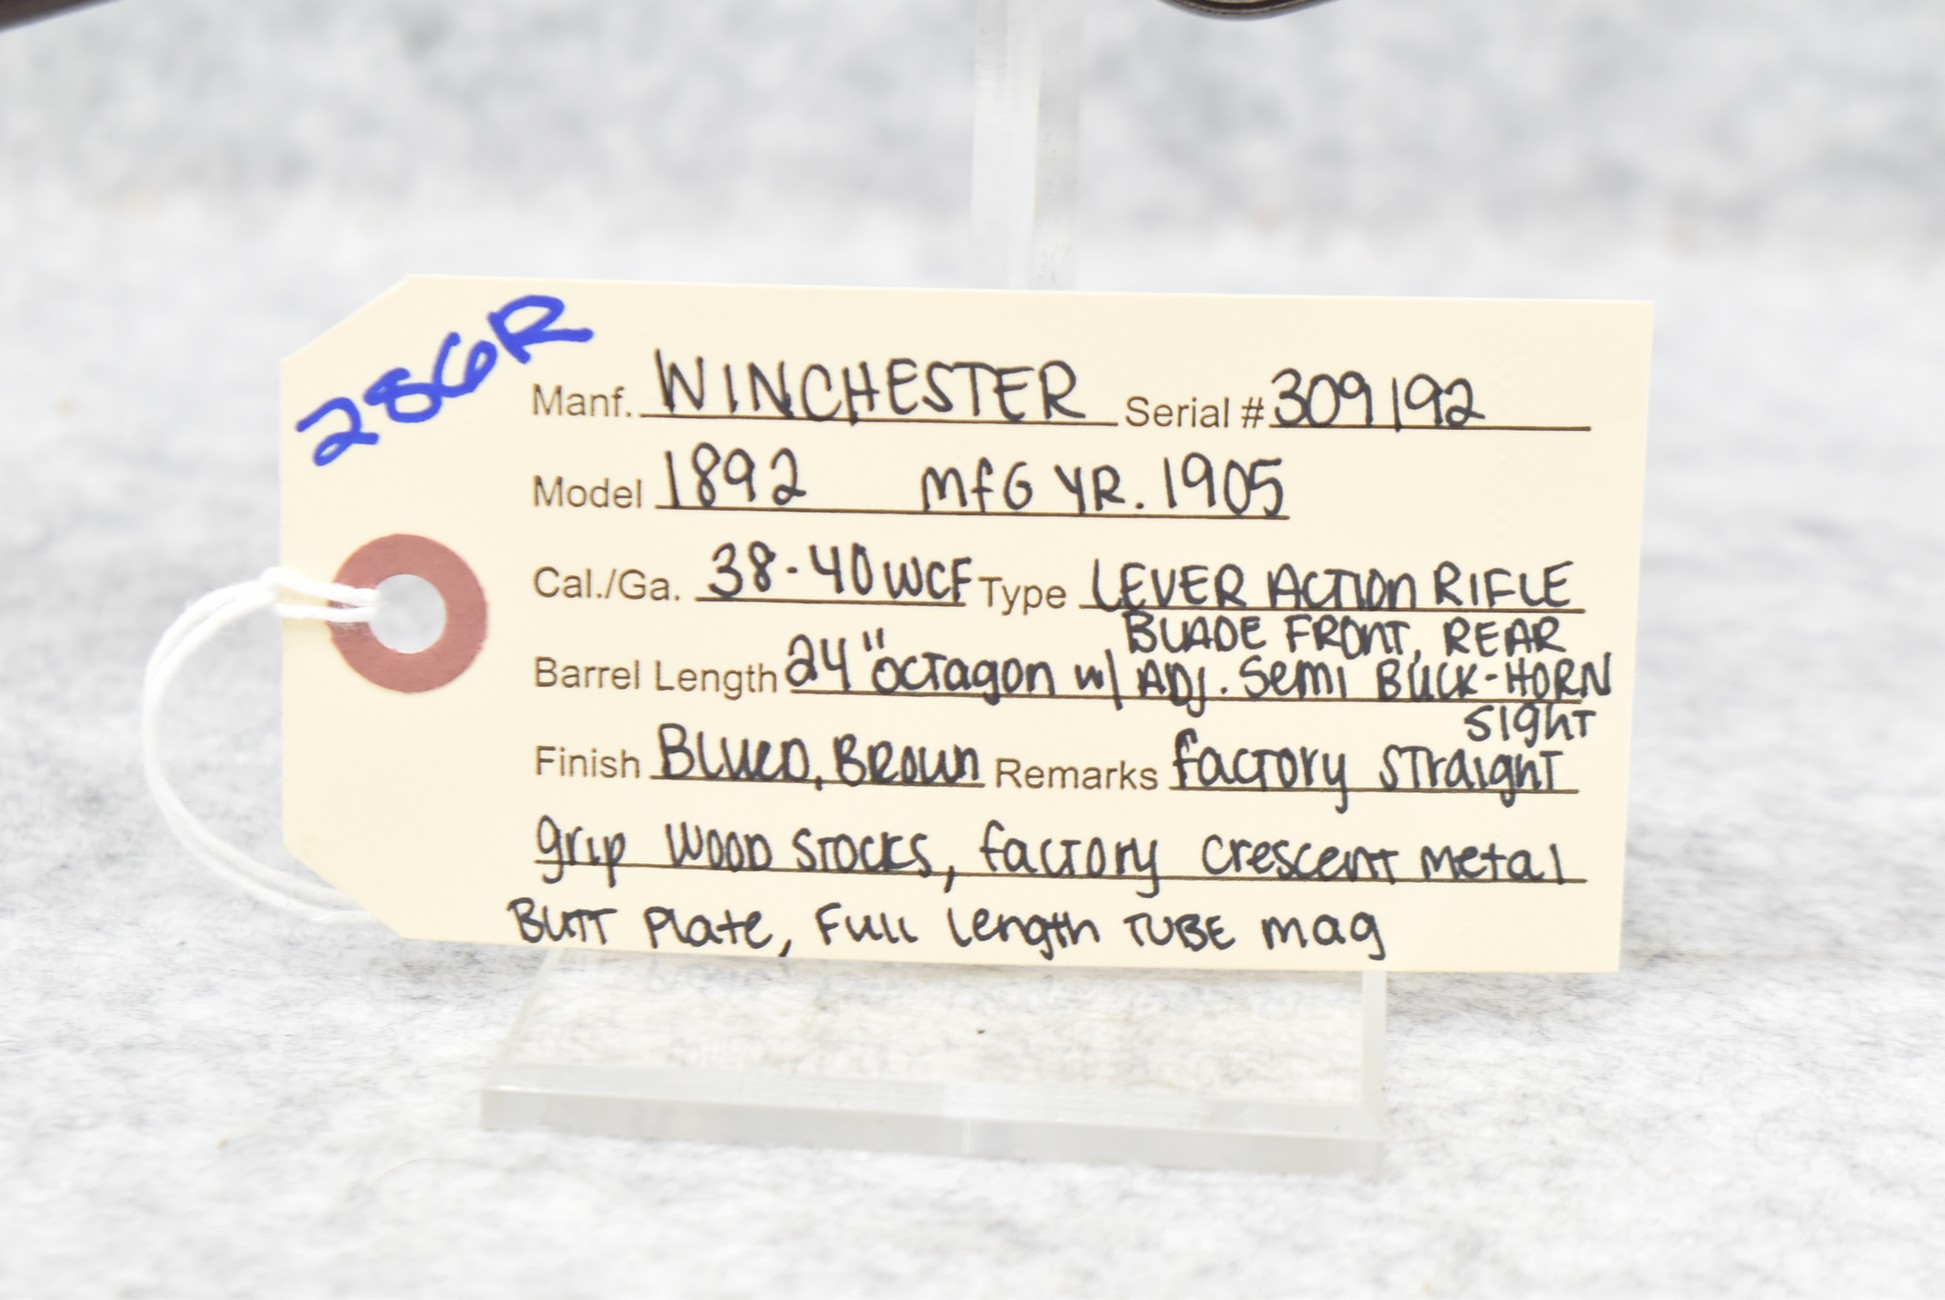 286R
Manf. WINCHESTER Serial # 309192
Model 1892 MfG YR. 1905
Cal./Ga. 38-40 WCF Type LEVER ACTION RIFLE
BLADE FRONT, REAR
Barrel Length 24" OCTagon w/ ADJ. Semi BUCK-HORN
SIGHT
Finish BLUED, BROWN Remarks factory STraight
grip WOOD STOCKS, factory crescent metal
BUTT Plate, Full length TUBE mag